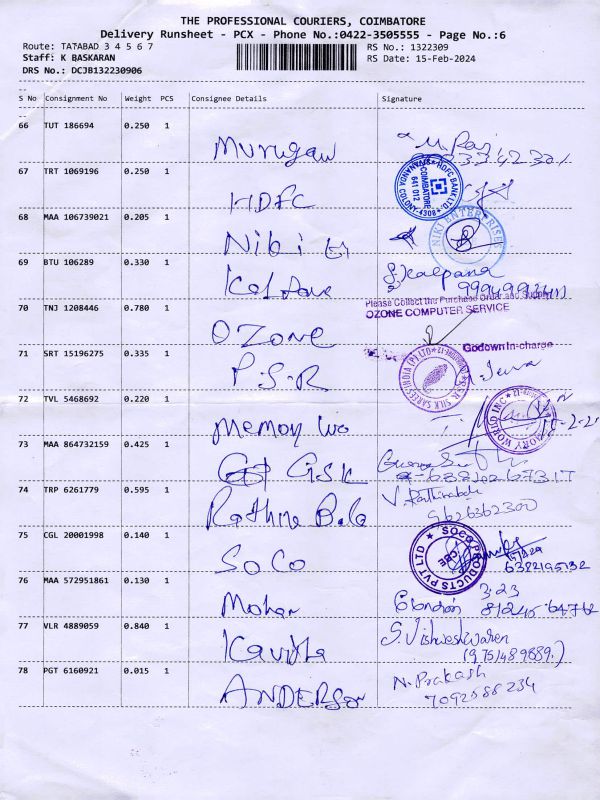 THE PROFESSIONAL COURIERS, COIMBATORE
Delivery Runsheet - PCX - Phone No.:0422-3505555 - Page No.:6
Route: TATABAD 3 4 5 6 7 RS No.: 1322309
Staff: K BASKARAN RS Date: 15-Feb-2024
DRS No.: DCJB132230906
S No Consignment No Weight PCS Consignee Details Signature
66 TUT 186694 0.250 1 Murugan
67 TRT 1069196 0.250 1 HDFC
HDFC BANK LTD.
COIMBATORE
641 012
68 MAA 106739021 0.205 1 Niki
NIKI ENTERPRISES
69 BTU 106289 0.330 1 Kalpana S. Kalpana
70 TNJ 1208446 0.780 1 OZone
Please Collect the Purchase Order and Supply
OZONE COMPUTER SERVICE
71 SRT 15196275 0.335 1 P.S.R
Godown In-charge
P.S.R SILK SAREES INDIA (P) LTD
72 TVL 5468692 0.220 1 Memory Wo
MEMORY WORLD INC
73 MAA 864732159 0.425 1 GSK
74 TRP 6261779 0.595 1 Rathna Bala
9626362300
75 CGL 20001998 0.140 1 SoCo
SOCO PRODUCTS PVT LTD
CBE
6382195132
76 MAA 572951861 0.130 1 Mohan
77 VLR 4889059 0.840 1 Kavitha S. Vishweshwaren
(9751489889.)
78 PGT 6160921 0.015 1 ANDERSon N. Prakash
7092588234